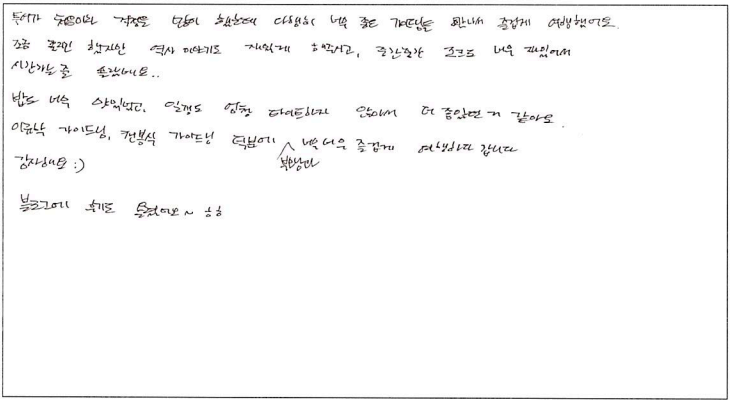 걱정을 많이 했는데 다행히 너무 좋은 가이드님을 만나서 즐겁게 여행했어요.
조금 했지만 역사 이야기도 재밌게 해주시고, 중간중간 조크도 너무 재밌어서
시간가는 줄 몰랐네요..
밥도 너무 맛있었고, 일정도 엄청 타이트하지 않아서 더 좋았던 거 같아요.
가이드님, 전봉식 가이드님 덕분에 너무너무 즐겁게 여행하다 갑니다
감사해요 :)
블로그에 후기도 올렸어요~ ㅎㅎ